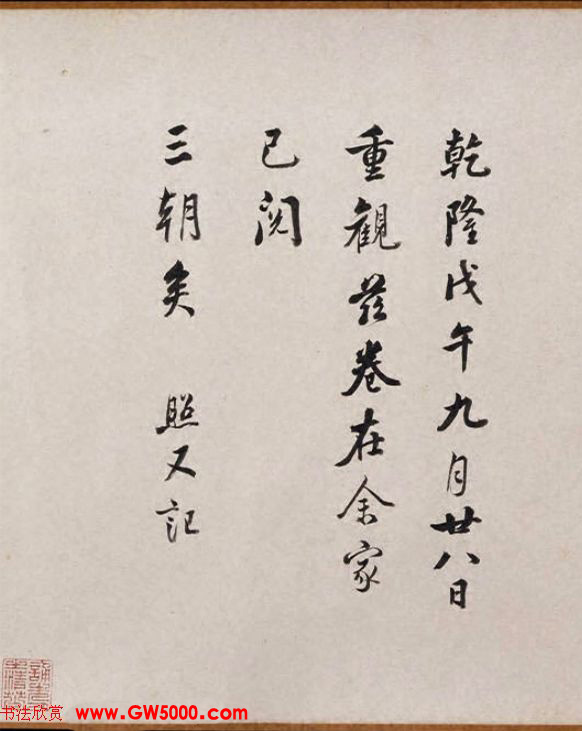 乾隆戊午九月廿八日
重觀茲卷在余家
已閱
三朝矣 照又記
书法欣赏 www.GW5000.com